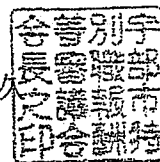 宇部市特
別職報酬
等審議会
会長之印